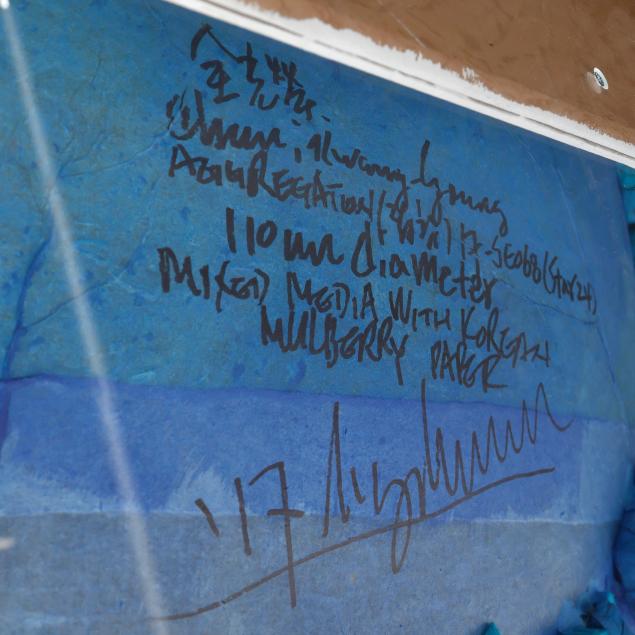 전광영
Chun, Kwang Young
AGGREGATION (thin) 17-SE068 (Star 24)
110 cm diameter
MIXED MEDIA WITH KOREAN
MULBERRY PAPER
'17